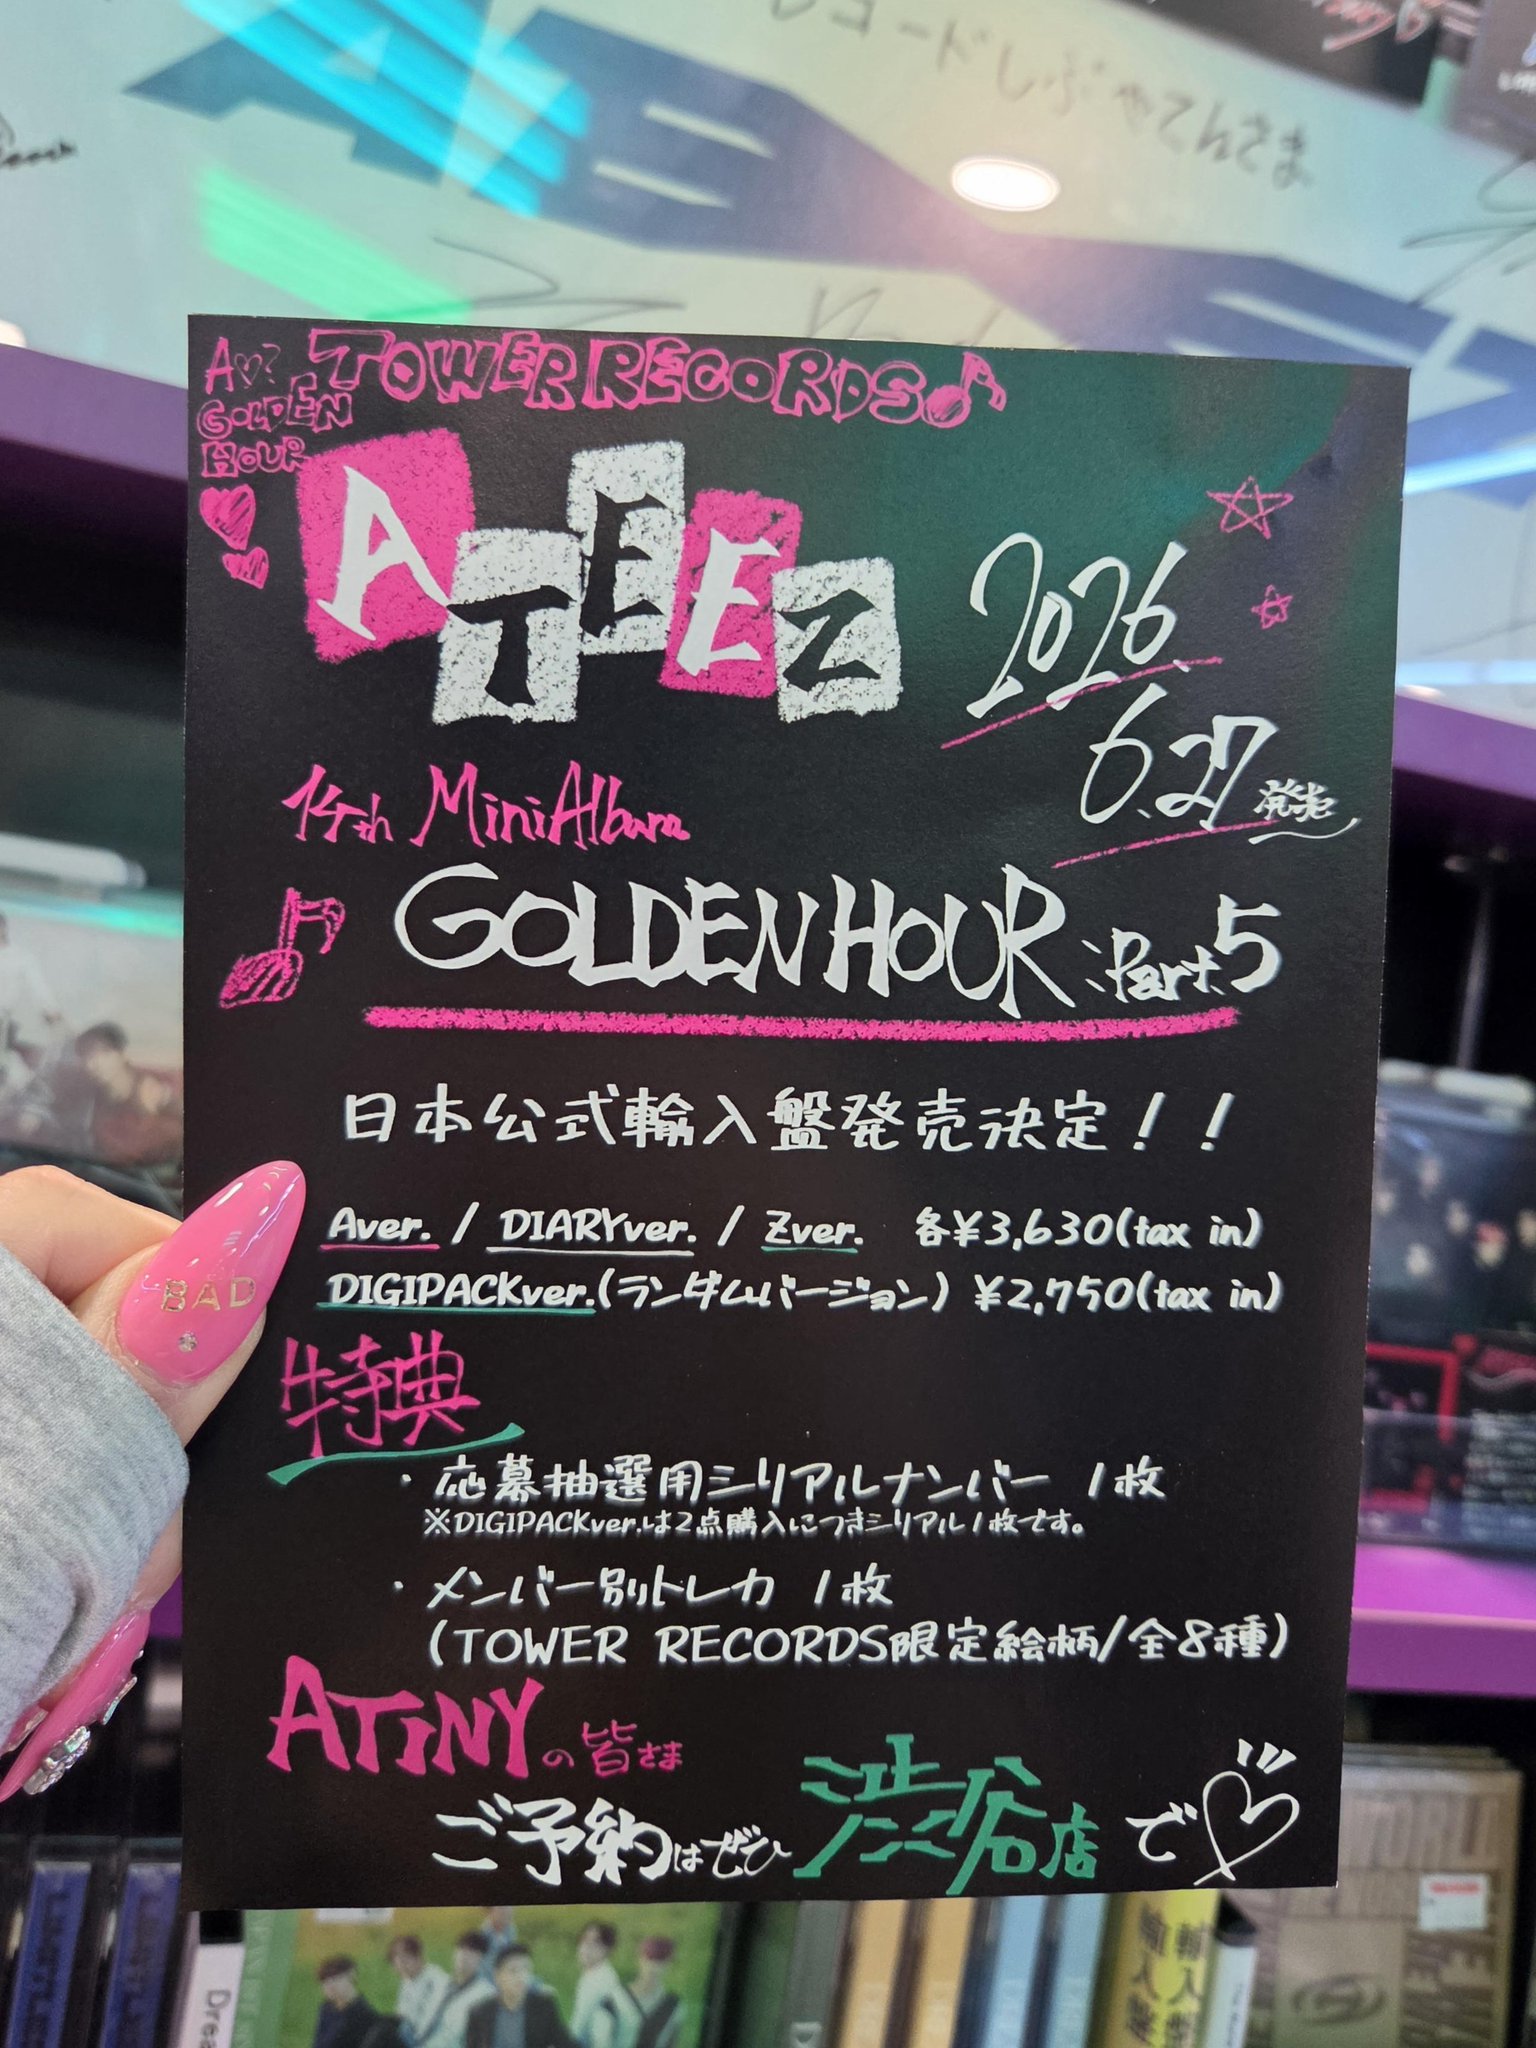 コードしぶやてんさま
A♡?
GOLDEN
HOUR
TOWER RECORDS
ATEEZ
2026.
6.27 発売
14th Mini Album
GOLDEN HOUR : Part.5
日本公式輸入盤発売決定！！
Aver. / DIARYver. / Zver. 各¥3,630(tax in)
DIGIPACKver.(ランダムバージョン) ¥2,750(tax in)
特典
・応募抽選用シリアルナンバー 1枚
※DIGIPACKver.は2点購入につきシリアル1枚です。
・メンバー別トレカ 1枚
(TOWER RECORDS限定絵柄/全8種)
ATINYの皆さま
ご予約はぜひ渋谷店で
BAD
輸入盤
輸入盤